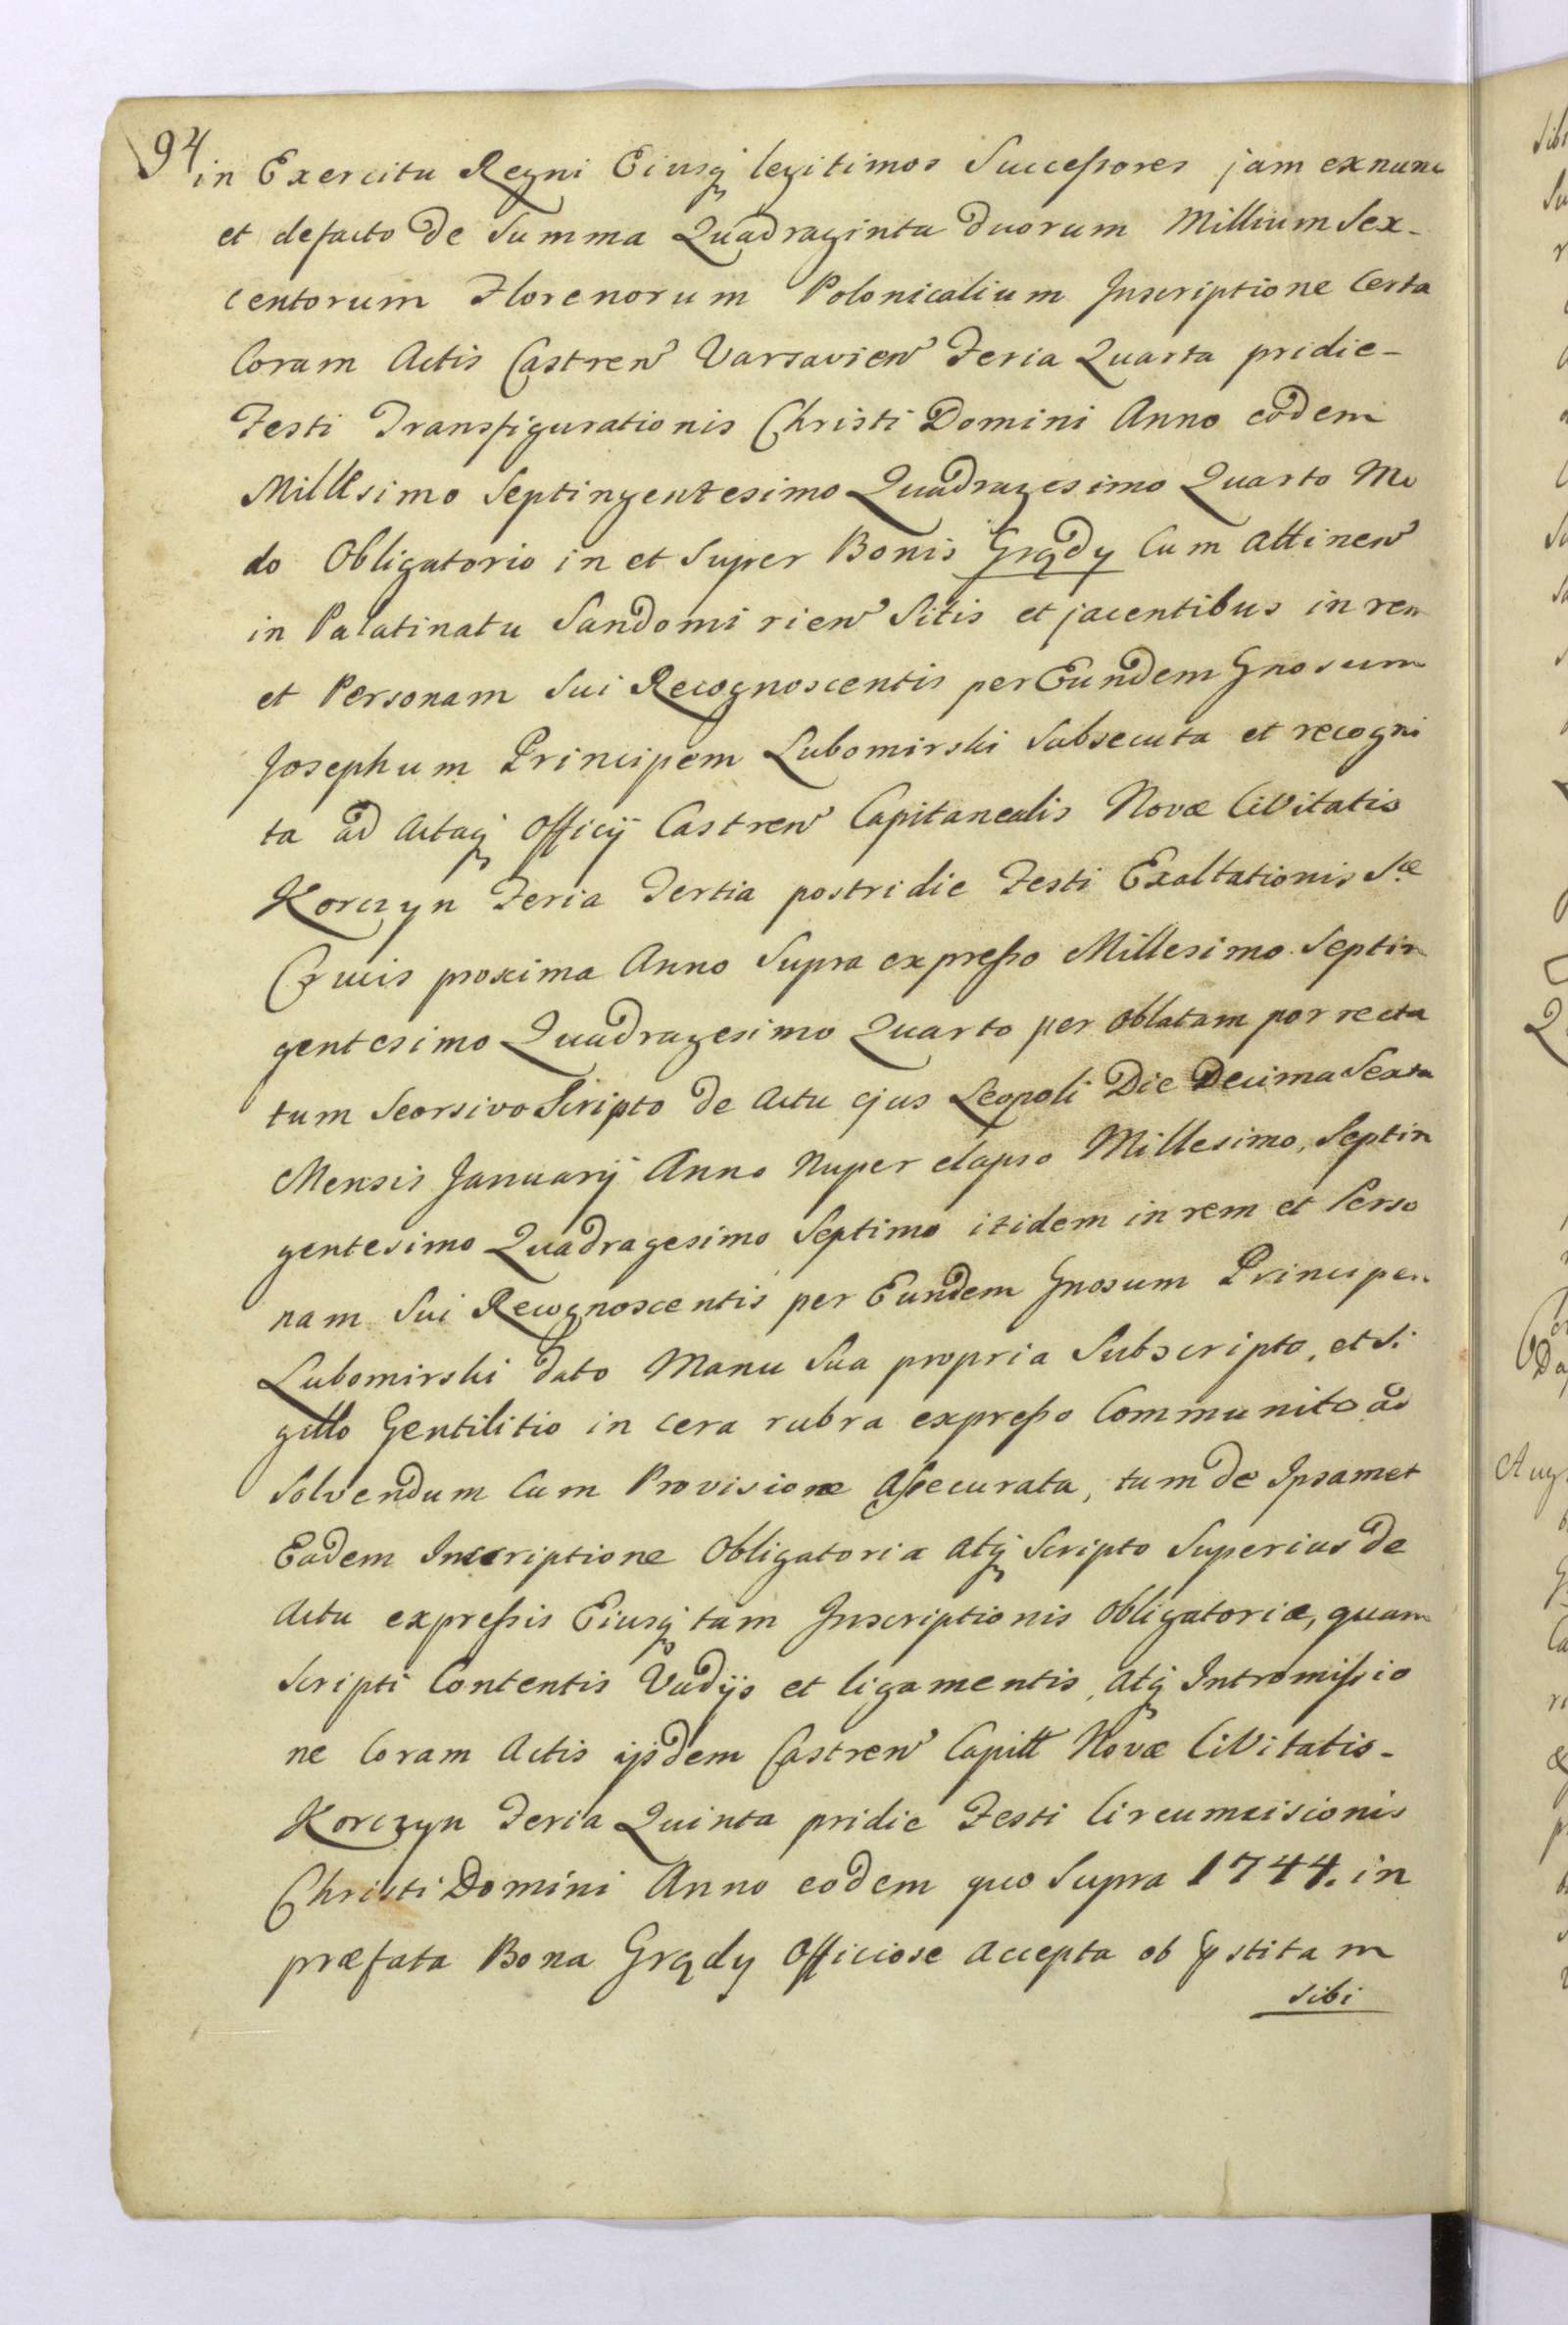 94
in Exercitu Regni Eiusq legitimos Successores jam exnunc
et defacto de Summa Quadraginta duorum Millium Sex-
centorum Florenorum Polonicalium Inscriptione Certa
Coram Actis Castren Varsavien Feria Quarta pridie-
Festi Transfigurationis Christi Domini Anno eodem
Millesimo Septingentesimo Quadragesimo Quarto Mo
do Obligatorio in et Super Bonis Grądy Cum attinen
in Palatinatu Sandomirien Sitis et jacentibus in rem
et Personam Sui Recognoscentis per Eundem Gnosum
Josephum Principem Lubomirski Subsecuta et recogni
ta ad Actaq Officij Castren Capitanealis Novæ Civitatis
Korczyn Feria Tertia postridie Festi Exaltationis Sæ
Crucis proxima Anno Supra expresso Millesimo Septin
gentesimo Quadragesimo Quarto per oblatam porrecta
tum Seorsivo Scripto de Actu ejus Leopoli Die Decima Sexta
Mensis Januarij Anno Nuper elapso Millesimo, Septin
gentesimo Quadragesimo Septimo itidem in rem et Perso
nam Sui Recognoscentis per Eundem Gnosum Principem
Lubomirski dato Manu Sua propria Subscripto, et Si
gillo Gentilitio in cera rubra expresso Communito ad
Solvendum Cum Provisione Assecurata, tum de Ipsamet
Eadem Inscriptione Obligatoria atq Scripto Superius de
Actu expressis Eiusq tam Inscriptionis obligatoriæ, quam
Scripti Contentis Vadijs et ligamentis, atq Intromissio
ne Coram Actis ijsdem Castren Capitt Novæ Civitatis-
Korczyn Feria Quinta pridie Festi Circumcisionis
Christi Domini Anno eodem quo Supra 1744. in
præfata Bona Grądy Officiose accepta ob pstitam
Sibi